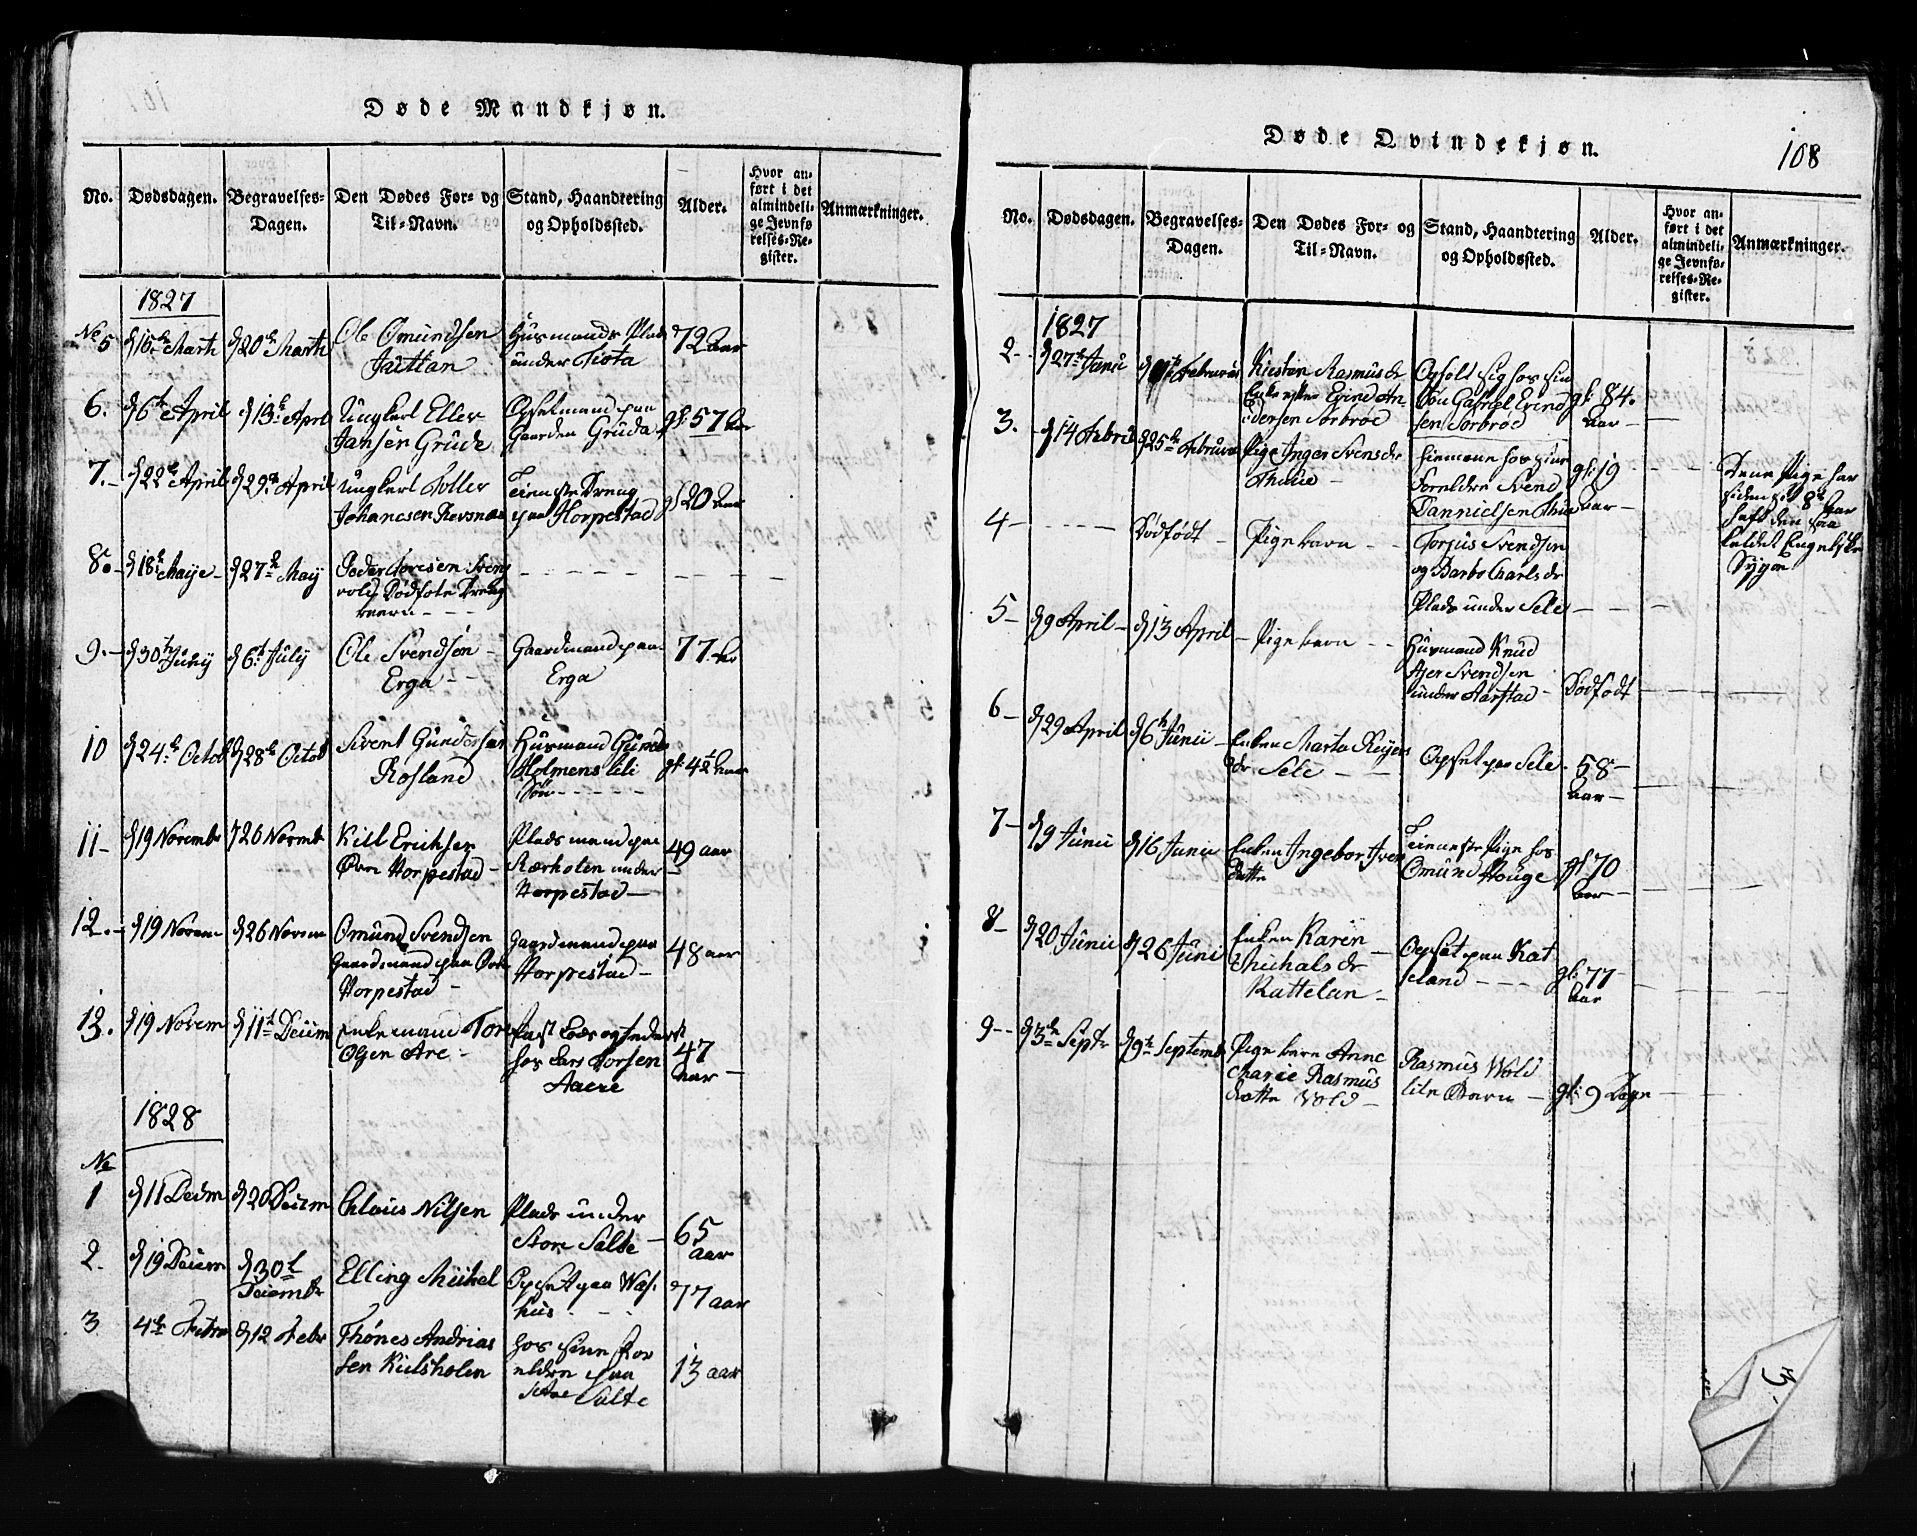 Døde Mandkjøn.
No.
Dødsdagen.
Begravelses-
Dagen.
Den Dødes For- og
Til-Navn.
Stand, Haandtering
og Opholdssted.
Alder.
Hvor an-
ført i det
almindeli-
ge Jevnfø
relses-Re-
gister.
Anmærkninger.
1827
No 5
d 15de Marti
d 20de Marti
Ole Omundsen
Husmands Plads
under Tiøta
72 Aar
6.
d 6te April
d 13de April
Ungkerl Eller
Jansen Grude
Opsetmand paa
Gaarden Gruda
gl. 57 aar
7.
d 22de April
d 29de April
Ungkerl Toller
Johanesen
Tieneste Dreng
paa Horpestad
gl 20 aar
8.
d 18de Maye
d 27de May
Dødføte Dreng
9.
d 30te Juny
d 6te July
Ole Svendsen
Erga
Gaardmand paa
Erga
77 aar
10
d 24de Octob
d 28de Octob
Sivert Gundersen
Rosland
Husmand
Holmens lili
Søn
gl. 4½ aar
11
d 19 Novembr
d 26 Novembr
Kitl Erichsen
Øvre Horpestad
Pladsmand paa
under
Horpestad
49 aar
12.
d 19 Novem
d 26 Novem
Omund Svendsen
Gaardmand paa Øvre
Horpestad
Gaardmand paa
Horpestad
48 aar
13.
d 19 Novem
d 11te Deiem
Enkemand Tore
Olsen Are
hos Lars Torsen
Aaere
47
aar
1828
No
1
d 11 Deiem
d 20 Deiem
Claus Nilsen
Plads under
Store Salte
65
aar
2.
d 19 Deiem
d 30te
Deiembr
Elling Michel
Opset paa Was-
hus
77 aar
3
4de Febr
d 12 Febr
Thønes Andrias
sen Kielsholen
hos sine For
eldre paa
Salte
13 aar
Døde Qvindekjøn.
108
No.
Dødsdagen.
Begravelses-
Dagen.
Den Dødes For- og
Til-Navn.
Stand, Haandtering
og Opholdssted.
Alder.
Hvor an-
ført i det
almindeli-
ge Jevnfø-
relses-Re-
gister.
Anmærkninger.
1827
2.
d 27de Janu
Februari
Kiesten Rasmus dr
Enke efter Eivind An-
dersen Sørbrøe
Opholt sig hos sin
Søn Gabriel Eivind
sen Sørbrøe
gl. 84.
Aar
3.
d 14 Febru
d 25de Februari
Pige Inger Svens dr
Thime
hiemme hos sine
Foreldre Svend
Dannielsen Thime
gl: 19
aar
Dene Pige har
siden sit 8de Aar
haft den saa
kaldet Engelske
Sygen
4
Dødfødt
Pigebarn
Torjus Svendsen
og Barbo Charls dr
Plads under Sele
5
d 9 April
d 13 April
Pigebarn
Husmand Knud
Ajer Svendsen
under Aarstad
Dødfødt
6
d 29 April
d 6te Junii
Enken Marta Reiers
dr Sele
Opset paa Sele
58
aar
7
d 9 Junii
d 16 Junii
Enken Ingebor Iver
datte
Tieneste Pige hos
Omund Houge
gl 70
aar
8
d 20 Junii
d 26 Juni
Enken Karen
Michals dr
Kattelan
Opset paa Kat
seland
gl. 77
aar
9
d 3de Septr
d 9de Septembr
Pige barn Anne
Marie Rasmus
datte Vold
Rasmus Wold
lile Barn
gl: 9 Dage
3